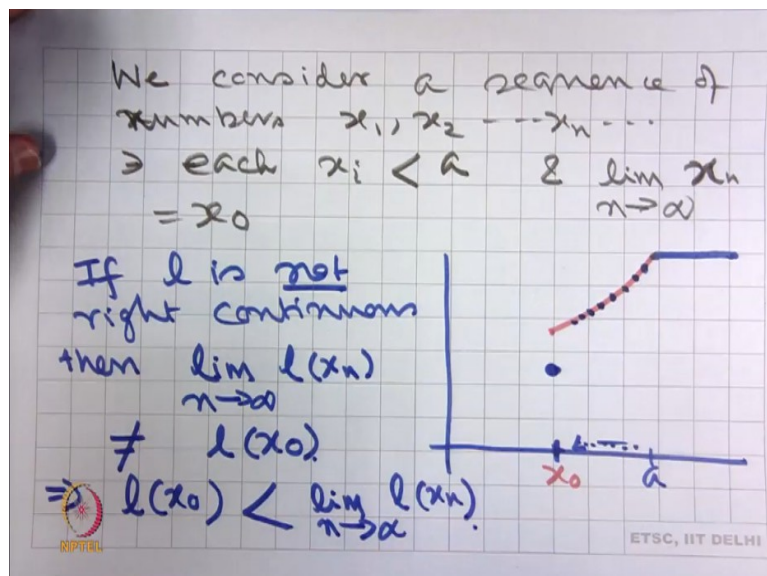 We consider a sequence of
numbers x₁, x₂ ---- xₙ ---
∋ each xᵢ < a & lim xₙ
n→∞
= x₀
If l is not
right continuous
then lim l(xₙ)
n→∞
≠ l(x₀).
⇒ l(x₀) < lim l(xₙ).
n→∞
x₀ a
NPTEL
ETSC, IIT DELHI